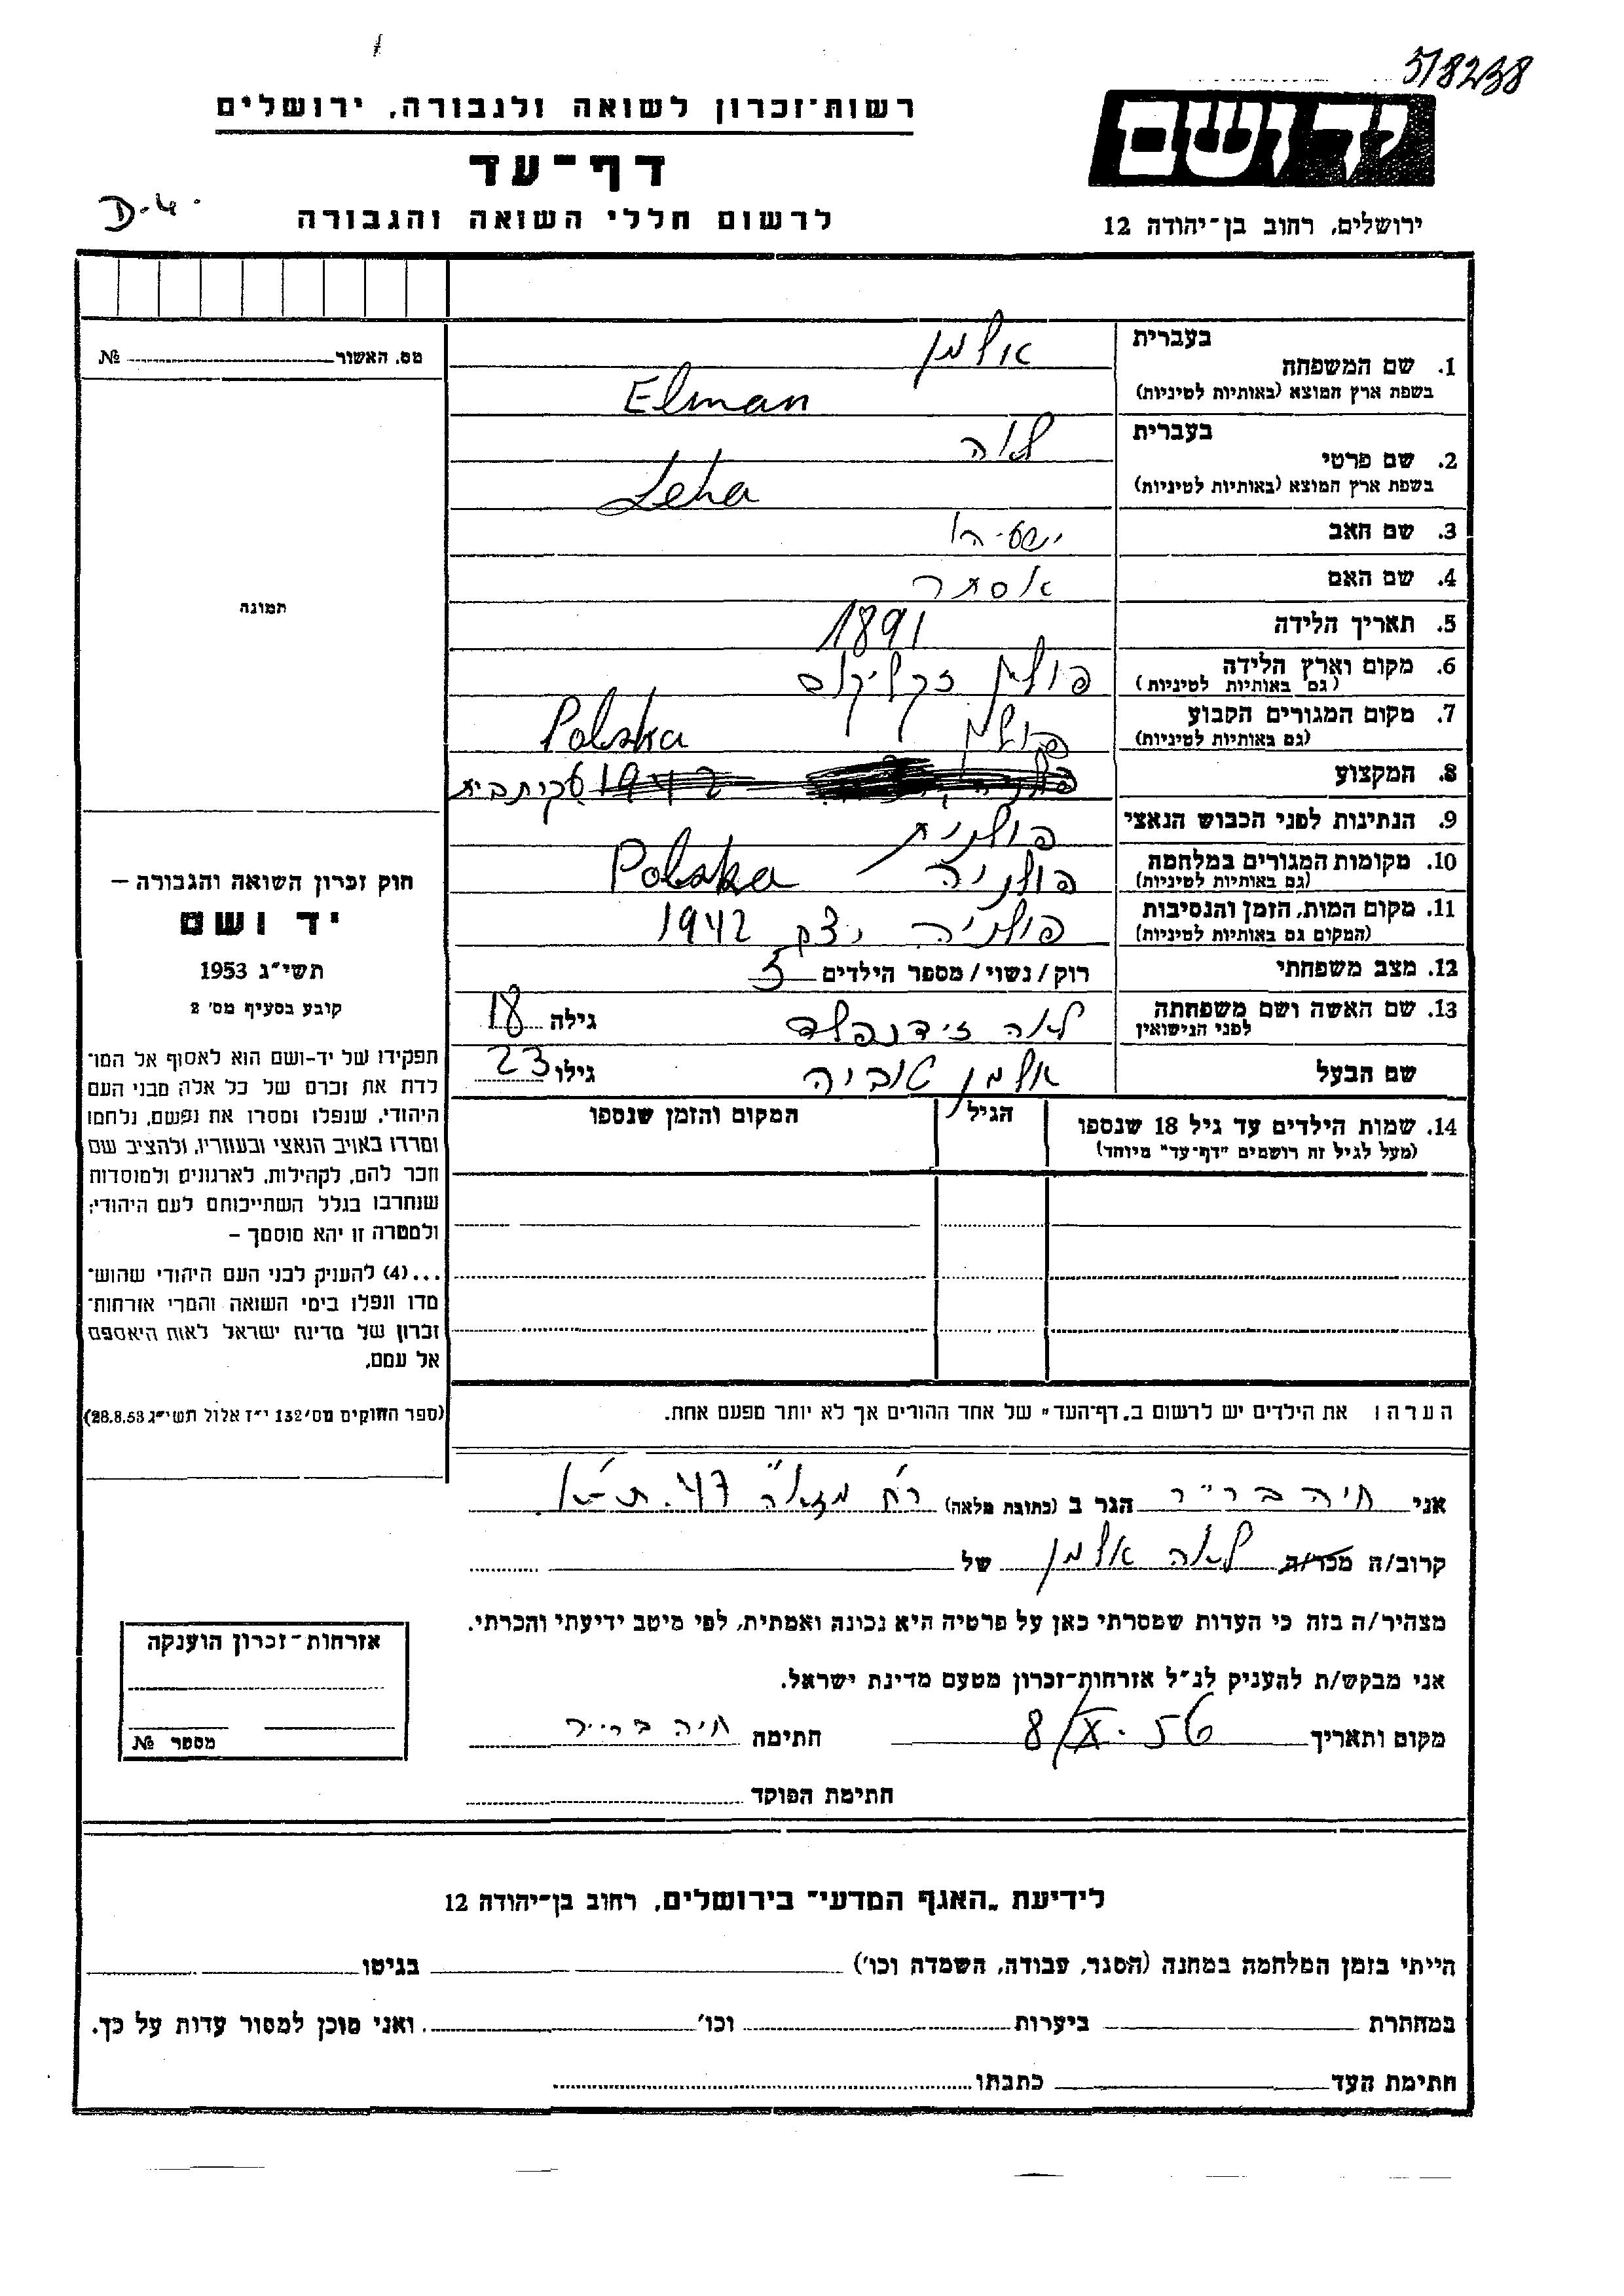 5/8238
רשות־זכרון לשואה ולגבורה, ירושלים
דף־עד
לרשום חללי השואה והגבורה
D-4.
יד ושם
ירושלים, רחוב בן־יהודה 12
מס. האשור № 
1. שם המשפחה בעברית אלמן
בשפת ארץ המוצא (באותיות לטיניות) Elman
2. שם פרטי בעברית לאה
בשפת ארץ המוצא (באותיות לטיניות) Leha
3. שם האב
4. שם האם אסתר
5. תאריך הלידה 1891
6. מקום וארץ הלידה (גם באותיות לטיניות) פולין
7. מקום המגורים הקבוע (גם באותיות לטיניות) פולין Polska
8. המקצוע 1942 עקרת בית
9. הנתינות לפני הכבוש הנאצי פולנית
10. מקומות המגורים במלחמה (גם באותיות לטיניות) פולניה Polska
11. מקום המות, הזמן והנסיבות (המקום גם באותיות לטיניות) פולניה 1942
12. מצב משפחתי רוק/נשוי/מספר הילדים 5
13. שם האשה ושם משפחתה לפני הנישואין לאה זידנפלד גילה 18
שם הבעל אלמן טוביה גילו 23
14. שמות הילדים עד גיל 18 שנספו (מעל לגיל זה רושמים "דף־עד" מיוחד) הגיל המקום והזמן שנספו
הערה: את הילדים יש לרשום ב„דף־העד" של אחד ההורים אך לא יותר מפעם אחת.
תמונה
חוק זכרון השואה והגבורה –
יד ושם
תשי״ג 1953
קובע בסעיף מס׳ 2
תפקידו של יד-ושם הוא לאסוף אל המו־
לדת את זכרם של כל אלה מבני העם
היהודי, שנפלו ומסרו את נפשם, נלחמו
ומרדו באויב הנאצי ובעוזריו, ולהציב שם
וזכר להם, לקהילות, לארגונים ולמוסדות
שנחרבו בגלל השתייכותם לעם היהודי;
ולמטרה זו יהא מוסמך –
...(4) להעניק לבני העם היהודי שהוש־
מדו ונפלו בימי השואה והמרי אזרחות־
זכרון של מדינת ישראל לאות היאספם
אל עמם.
(ספר החוקים מס׳ 132 י״ז אלול תשי״ג 28.8.53)
אני חיה ברייר הגר ב (כתובת מלאה) רח׳ מזא״ה 47 ת״א
קרוב/ה מכר/ה לאה אלמן של
מצהיר/ה בזה כי העדות שמסרתי כאן על פרטיה היא נכונה ואמתית, לפי מיטב ידיעתי והכרתי.
אני מבקש/ת להעניק לנ״ל אזרחות־זכרון מטעם מדינת ישראל.
מקום ותאריך 8/X.56 חתימה חיה ברייר
חתימת הפוקד
אזרחות־זכרון הוענקה
מספר №
לידיעת „האגף המדעי" בירושלים, רחוב בן־יהודה 12
הייתי בזמן המלחמה במחנה (הסגר, עבודה, השמדה וכו׳) בגיטו
במחתרת ביערות וכו׳ ואני מוכן למסור עדות על כך.
חתימת העד כתבתו